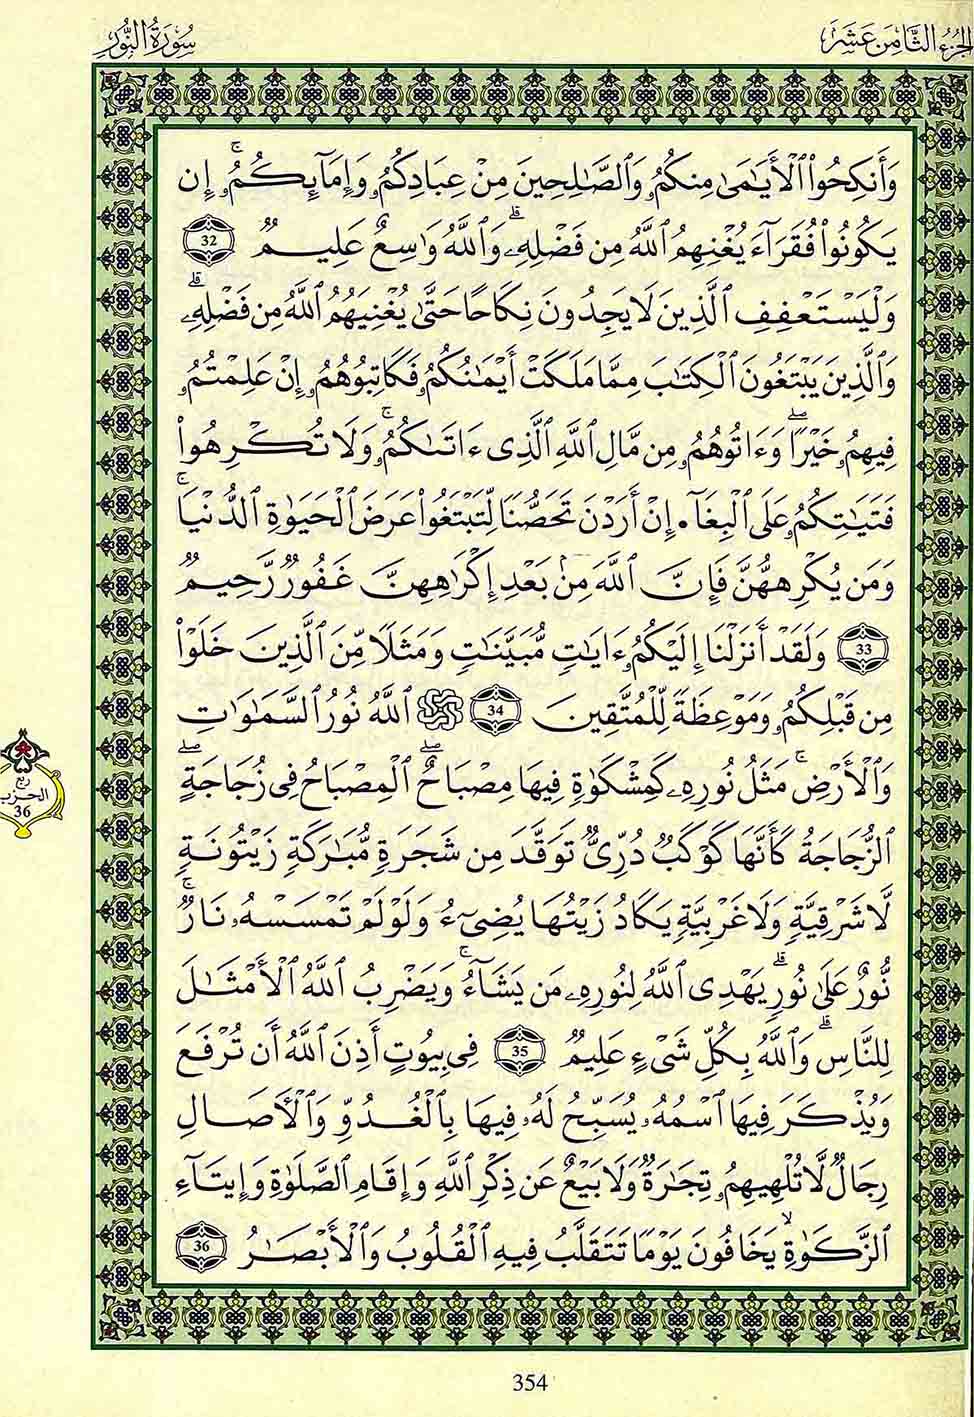 الجزء الثامن عشر
سورة النور
وَأَنكِحُوا۟ ٱلْأَيَـٰمَىٰ مِنكُمُۥ وَٱلصَّـٰلِحِينَ مِنْ عِبَادِكُمُۥ وَإِمَآئِكُمُۥۚ إِن
يَكُونُوا۟ فُقَرَآءَ يُغْنِهِمُ ٱللَّهُ مِن فَضْلِهِۦۗ وَٱللَّهُ وَٰسِعٌ عَلِيمٌ 32
وَلْيَسْتَعْفِفِ ٱلَّذِينَ لَا يَجِدُونَ نِكَاحًا حَتَّىٰ يُغْنِيَهُمُ ٱللَّهُ مِن فَضْلِهِۦۗ
وَٱلَّذِينَ يَبْتَغُونَ ٱلْكِتَـٰبَ مِمَّا مَلَكَتْ أَيْمَـٰنُكُمُۥ فَكَاتِبُوهُمُۥ إِنْ عَلِمْتُمُۥ
فِيهِمُۥ خَيْرًاۖ وَءَاتُوهُمُۥ مِن مَّالِ ٱللَّهِ ٱلَّذِى ءَاتَىٰكُمُۥۚ وَلَا تُكْرِهُوا۟
فَتَيَـٰتِكُمُۥ عَلَى ٱلْبِغَآءِ اِنْ أَرَدْنَ تَحَصُّنًا لِّتَبْتَغُوا۟ عَرَضَ ٱلْحَيَوٰةِ ٱلدُّنْيَاۚ
وَمَن يُكْرِههُّنَّ فَإِنَّ ٱللَّهَ مِنۢ بَعْدِ إِكْرَٰهِهِنَّ غَفُورٌ رَّحِيمٌ
33 وَلَقَدْ أَنزَلْنَا إِلَيْكُمُۥ ءَايَـٰتٍ مُّبَيَّنَـٰتٍ وَمَثَلًا مِّنَ ٱلَّذِينَ خَلَوْا۟
مِن قَبْلِكُمُۥ وَمَوْعِظَةً لِّلْمُتَّقِينَ 34 ۞ ٱللَّهُ نُورُ ٱلسَّمَـٰوَٰتِ
وَٱلْأَرْضِۚ مَثَلُ نُورِهِۦ كَمِشْكَوٰةٍ فِيهَا مِصْبَاحٌۖ ٱلْمِصْبَاحُ فِى زُجَاجَةٍۖ
ٱلزُّجَاجَةُ كَأَنَّهَا كَوْكَبٌ دُرِّىٌّ تَوَقَّدَ مِن شَجَرَةٍ مُّبَـٰرَكَةٍ زَيْتُونَةٍ
لَّا شَرْقِيَّةٍ وَلَا غَرْبِيَّةٍ يَكَادُ زَيْتُهَا يُضِىٓءُ وَلَوْ لَمْ تَمْسَسْهُۥ نَارٌۚ
نُّورٌ عَلَىٰ نُورٍۗ يَهْدِى ٱللَّهُ لِنُورِهِۦ مَن يَشَآءُۚ وَيَضْرِبُ ٱللَّهُ ٱلْأَمْثَـٰلَ
لِلنَّاسِۗ وَٱللَّهُ بِكُلِّ شَىْءٍ عَلِيمٌ 35 فِى بِيُوتٍ أَذِنَ ٱللَّهُ أَن تُرْفَعَ
وَيُذْكَرَ فِيهَا ٱسْمُهُۥ يُسَبِّحُ لَهُۥ فِيهَا بِٱلْغُدُوِّ وَٱلْأَصَالِ
رِجَالٌ لَّا تُلْهِيهِمُۥ تِجَـٰرَةٌ وَلَا بَيْعٌ عَن ذِكْرِ ٱللَّهِ وَإِقَامِ ٱلصَّلَوٰةِ وَإِيتَآءِ
ٱلزَّكَوٰةِۙ يَخَافُونَ يَوْمًا تَتَقَلَّبُ فِيهِ ٱلْقُلُوبُ وَٱلْأَبْصَـٰرُ 36
ربع
الحزب
36
354